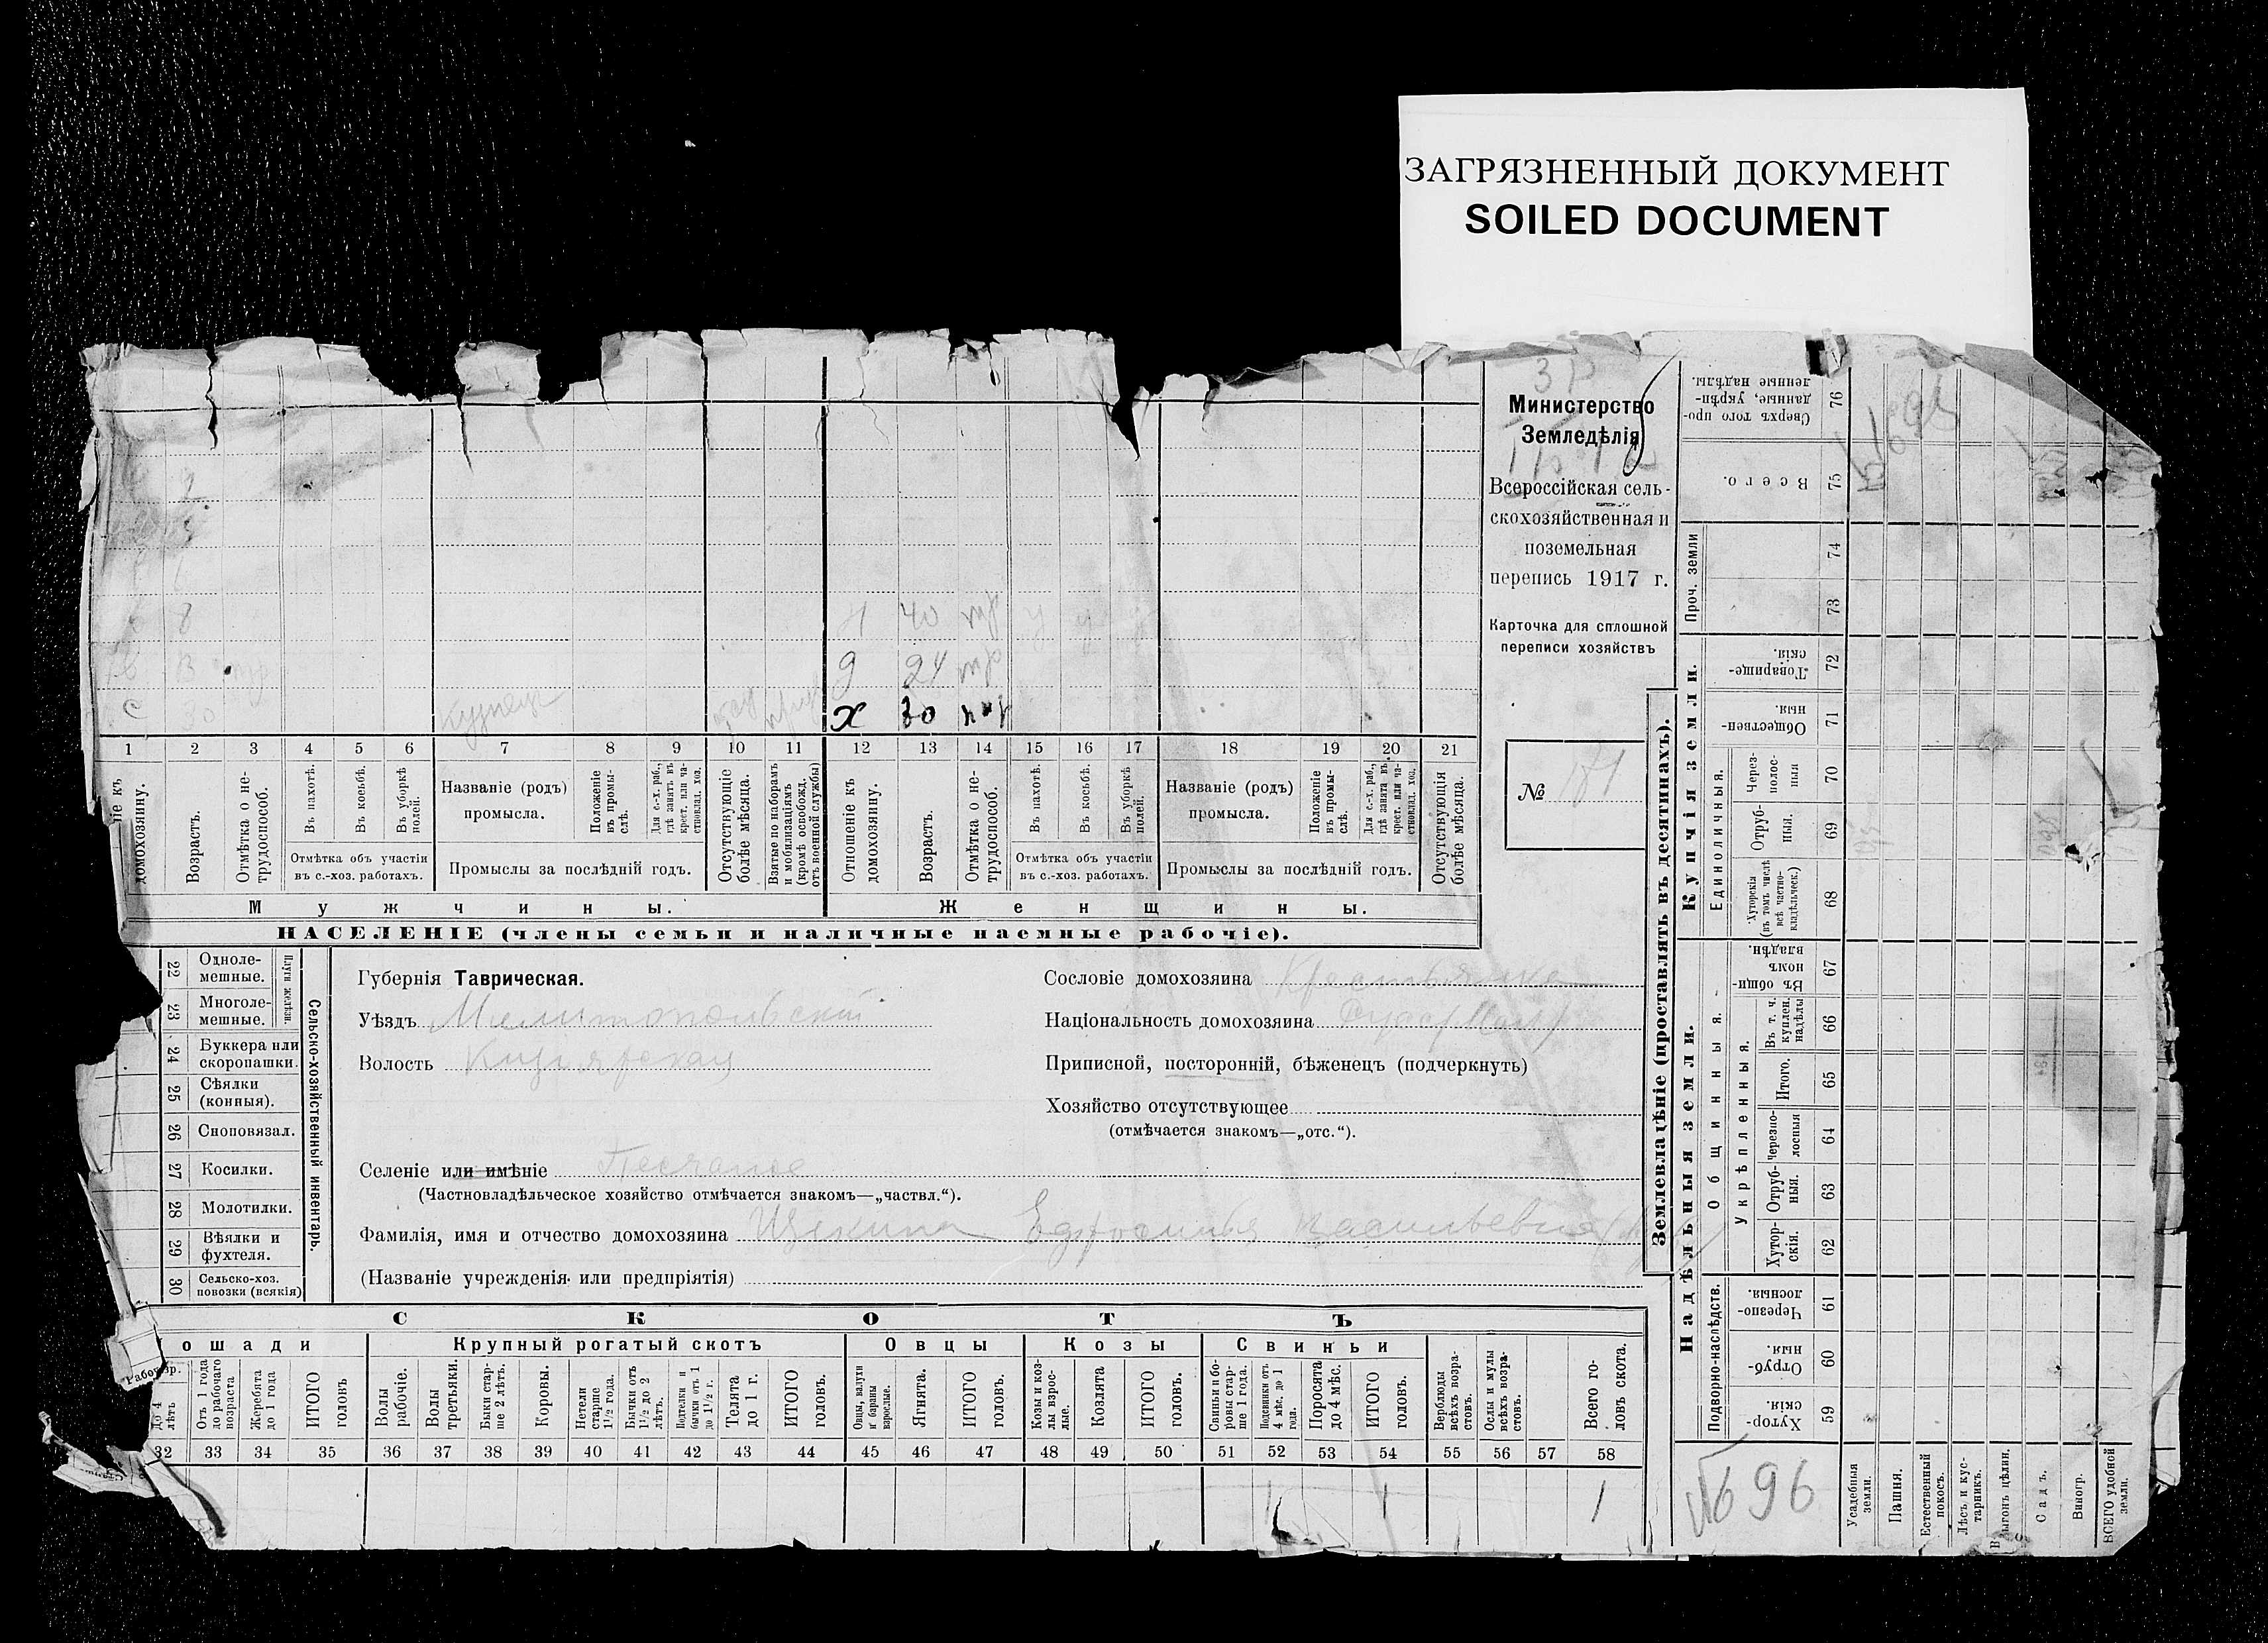 ЗАГРЯЗНЕННЫЙ ДОКУМЕНТ
SOILED DOCUMENT
Министерство
Земледѣлія
Всероссійская сель-
скохозяйственная и
поземельная
перепись 1917 г.
Карточка для сплошной
переписи хозяйствъ
№
2
8
Н 40 нр
д 24 нр
С 30 Кузнецъ Х 30 нор
1 2 3 4 5 6 7 8 9 10 11 12 13 14 15 16 17 18 19 20 21
домохозяину.
Возрастъ.
Отмѣтка о не-
трудоспособ.
Въ пахотѣ.
Въ косьбѣ.
Въ уборкѣ
полей.
Отмѣтка объ участіи
въ с.-хоз. работахъ.
Названіе (родъ)
промысла.
Положеніе
въ промы-
слѣ.
Для с.-х. раб.,
гдѣ занятъ въ
крест. или ча-
стновлад. хоз.
Промыслы за послѣдній годъ.
Отсутствующіе
болѣе мѣсяца.
Взятые по наборамъ
и мобилизаціямъ
(кромѣ освобожд.
отъ военной службы)
Отношеніе къ
домохозяину.
Возрастъ.
Отмѣтка о не-
трудоспособ.
Въ пахотѣ.
Въ косьбѣ.
Въ уборкѣ
полей.
Отмѣтка объ участіи
въ с.-хоз. работахъ.
Названіе (родъ)
промысла.
Положеніе
въ промы-
слѣ.
Для с.-х. раб.,
гдѣ занята въ
крест. или ча-
стновлад. хоз.
Промыслы за послѣдній годъ.
Отсутствующія
болѣе мѣсяца.
Мужчины. Женщины.
НАСЕЛЕНІЕ (члены семьи и наличные наемные рабочіе).
22 Однолемешные.
23 Многолемешные.
Плуги желѣзн.
24 Буккера или
скоропашки.
25 Сѣялки
(конныя).
26 Сноповязал.
27 Косилки.
28 Молотилки.
29 Вѣялки и
фухтеля.
30 Сельско-хоз.
повозки (всякія)
Сельско-хозяйственный инвентарь.
Губернія Таврическая.
Уѣздъ Мелитопольскій
Волость Кизіярская
Селеніе или имѣніе Песчаное
(Частновладѣльческое хозяйство отмѣчается знакомъ—„частвл.“).
Фамилія, имя и отчество домохозяина Щекина Ефросинья Васильевна
(Названіе учрежденія или предпріятія)
Сословіе домохозяина Крестьянка
Національность домохозяина
Приписной, посторонній, бѣженецъ (подчеркнуть)
Хозяйство отсутствующее
(отмѣчается знакомъ—„отс.“).
СКОТЪ
Крупный рогатый скотъ
Овцы
Козы
Свиньи
До 4
лѣтъ
Отъ 1 года
до рабочаго
возраста
Жеребята
до 1 года
ИТОГО
головъ
Волы
рабочіе.
Волы
третьяки.
Быки стар-
ше 2 лѣтъ.
Коровы.
Нетели
старше
1½ года.
Бычки отъ
1½ до 2
лѣтъ.
Подтелки и
бычки отъ 1
до 1½ г.
Телята
до 1 г.
ИТОГО
головъ.
Овцы, валухи
и бараны
взрослые.
Ягнята.
ИТОГО
головъ.
Козы и коз-
лы взрос-
лые.
Козлята
ИТОГО
головъ.
Свиньи и бо-
ровы стар-
ше 1 года.
Подсвинки отъ
4 мѣс. до 1
года.
Поросята
до 4 мѣс.
ИТОГО
головъ.
Верблюды
всѣхъ возра-
стовъ.
Ослы и мулы
всѣхъ возра-
стовъ.
Всего го-
ловъ скота.
32 33 34 35 36 37 38 39 40 41 42 43 44 45 46 47 48 49 50 51 52 53 54 55 56 57 58
1 1 1
Землевладѣніе (проставлять въ десятинахъ).
Надѣльныя земли.
Купчія земли.
Проч. земли
Сверхъ того про-
данные, укрѣп-
ленные надѣлы.
76
Всего.
75
74
73
Товарище-
скія.
72
Обществен-
ныя.
71
Единоличныя.
Через-
полос-
ныя
70
Отруб-
ныя.
69
Хуторскія
(въ томъ числѣ
всѣ частно-
владѣльческ.)
68
Общинныя.
Въ общи-
номъ
владѣн.
67
Укрѣпленныя.
Въ т. ч.
куплен.
надѣлы
66
Итого.
65
Черезпо-
лосныя
64
Отруб-
ныя.
63
Хутор-
скія.
62
Подворно-наслѣдств.
Черезпо-
лосныя.
61
Отруб-
ныя.
60
Хутор-
скія.
59
Усадебныя
земли.
Пашня.
Естественный
покосъ.
Лѣсъ и кус-
тарникъ.
Выгонъ цѣлин.
Садъ.
Виногр.
ВСЕГО удобной
земли.
696